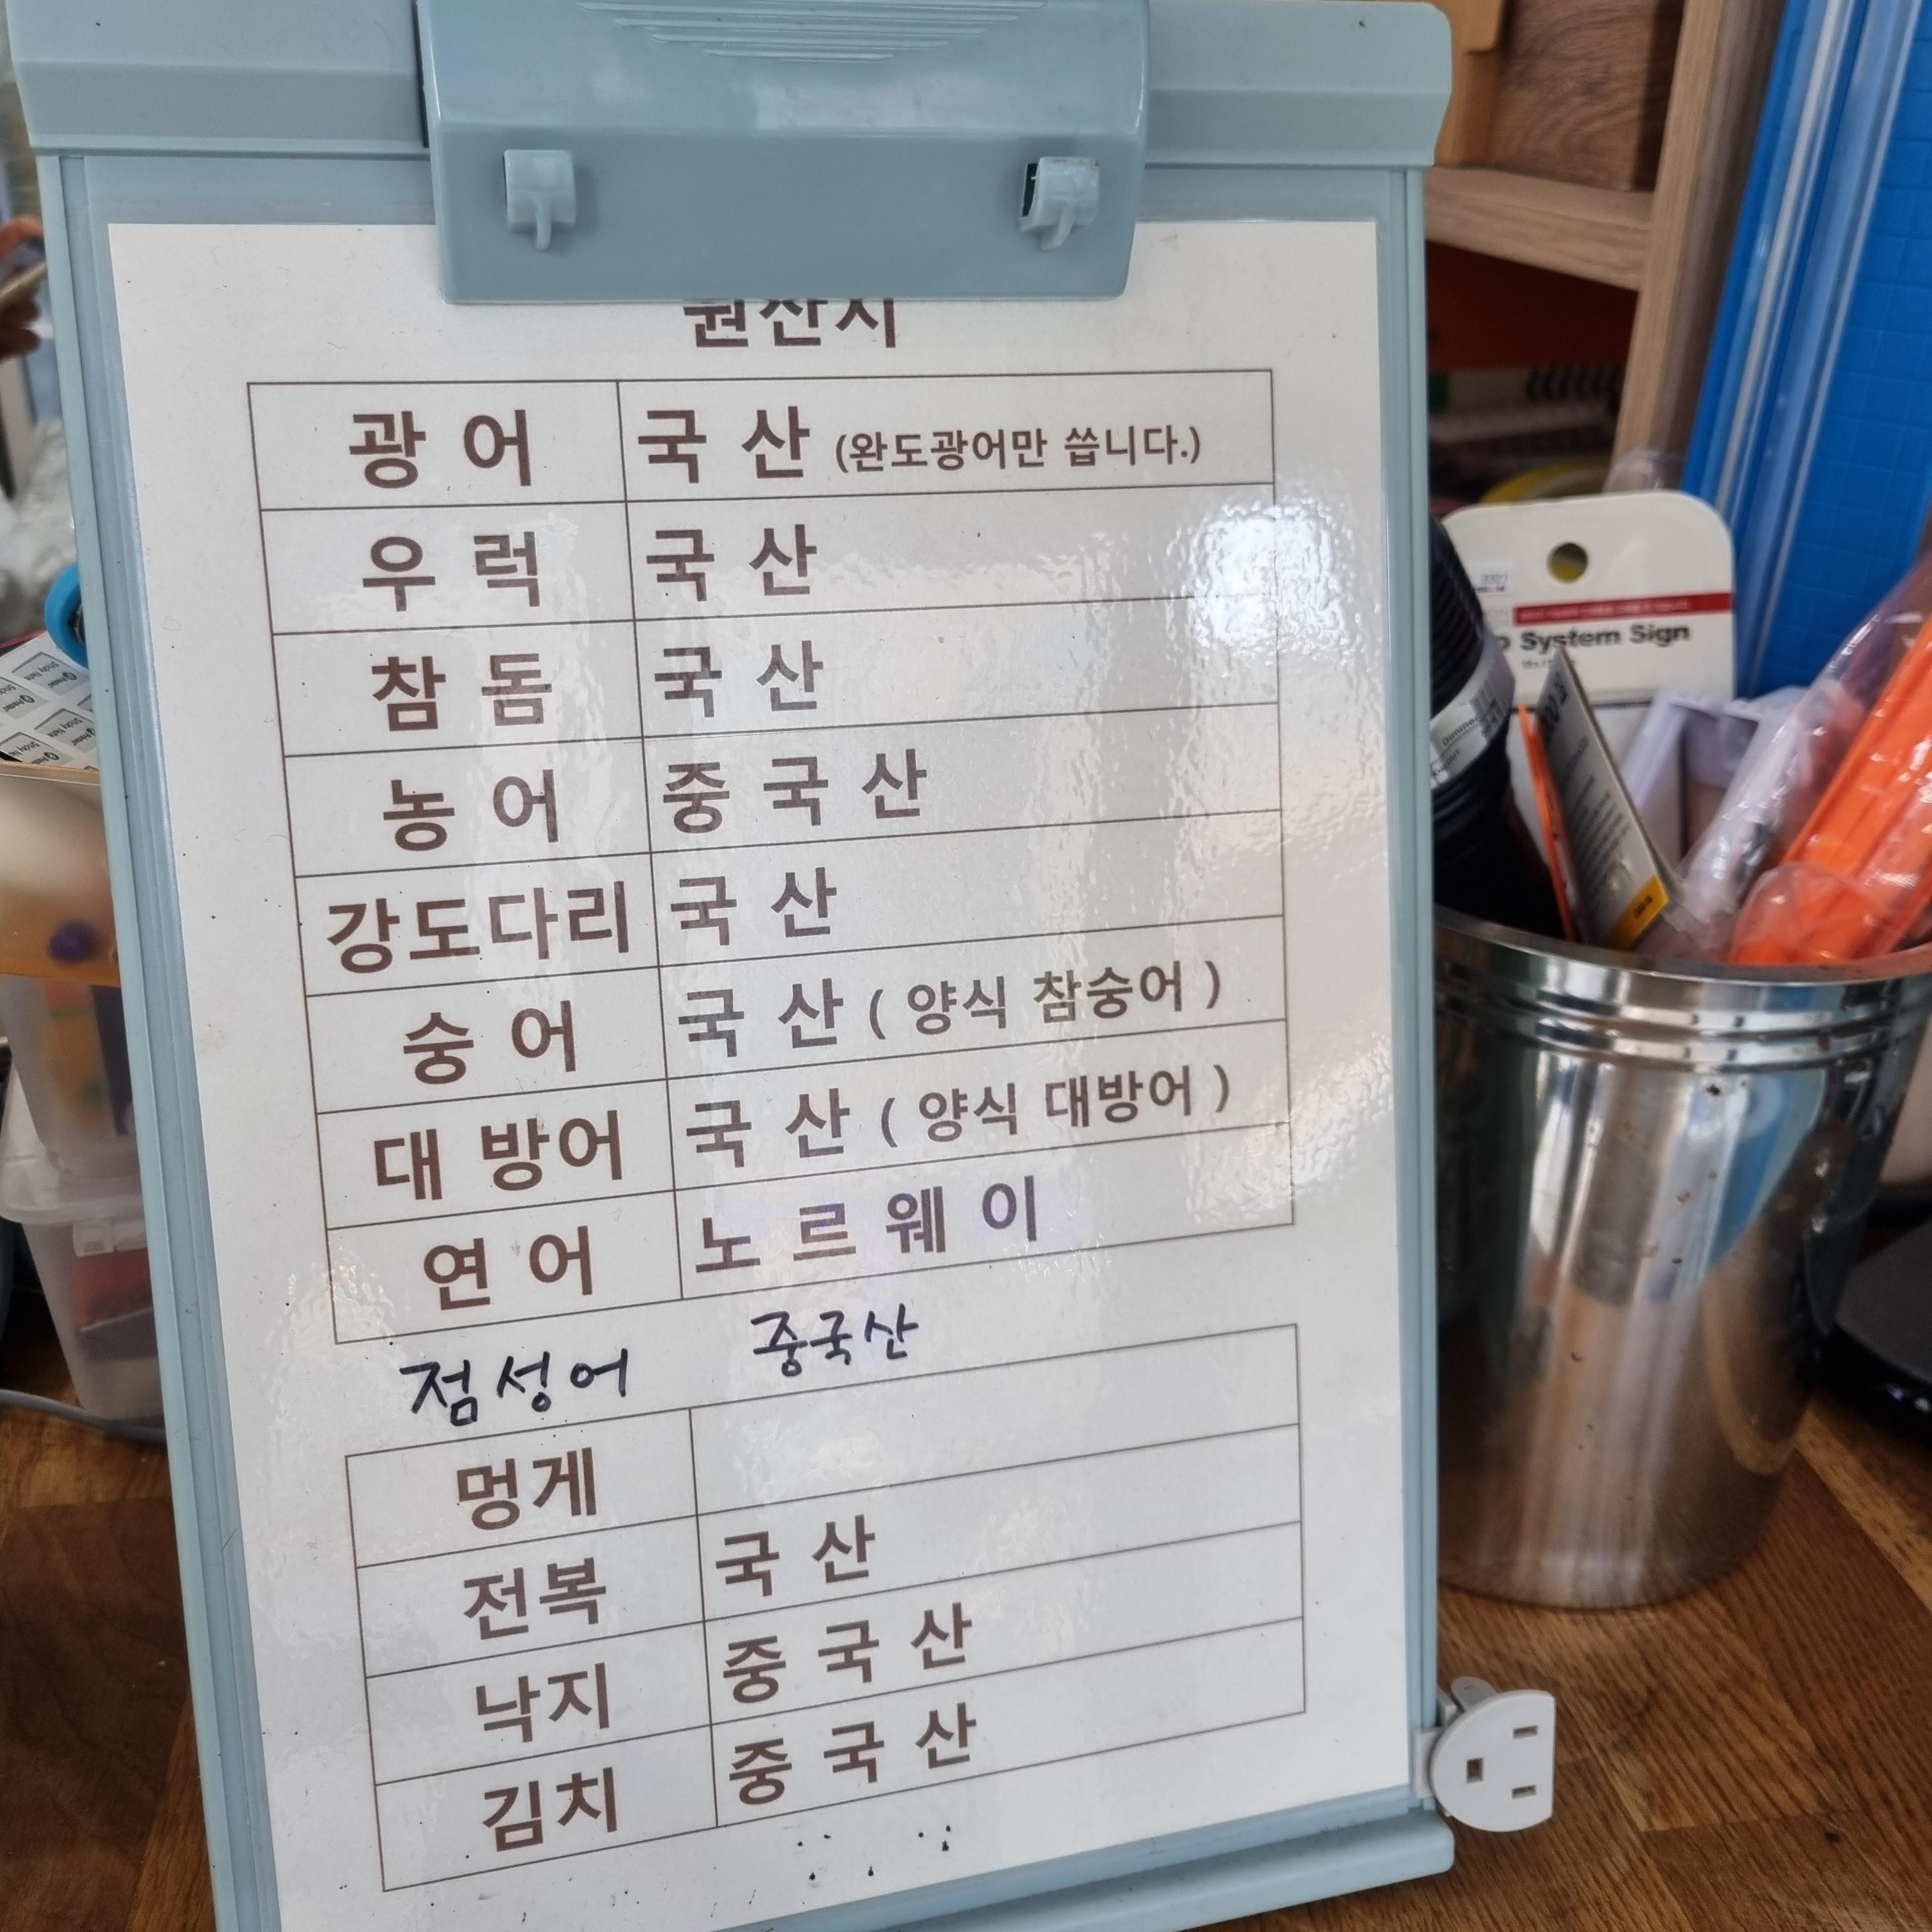 원산지
광 어 국 산 (완도광어만 씁니다.)
우 럭 국 산
참 돔 국 산
농 어 중 국 산
강도다리 국 산
숭 어 국 산 ( 양식 참숭어 )
대 방어 국 산 ( 양식 대방어 )
연 어 노 르 웨 이
점성어 중국산
멍게
전복 국 산
낙지 중 국 산
김치 중 국 산
System Sign